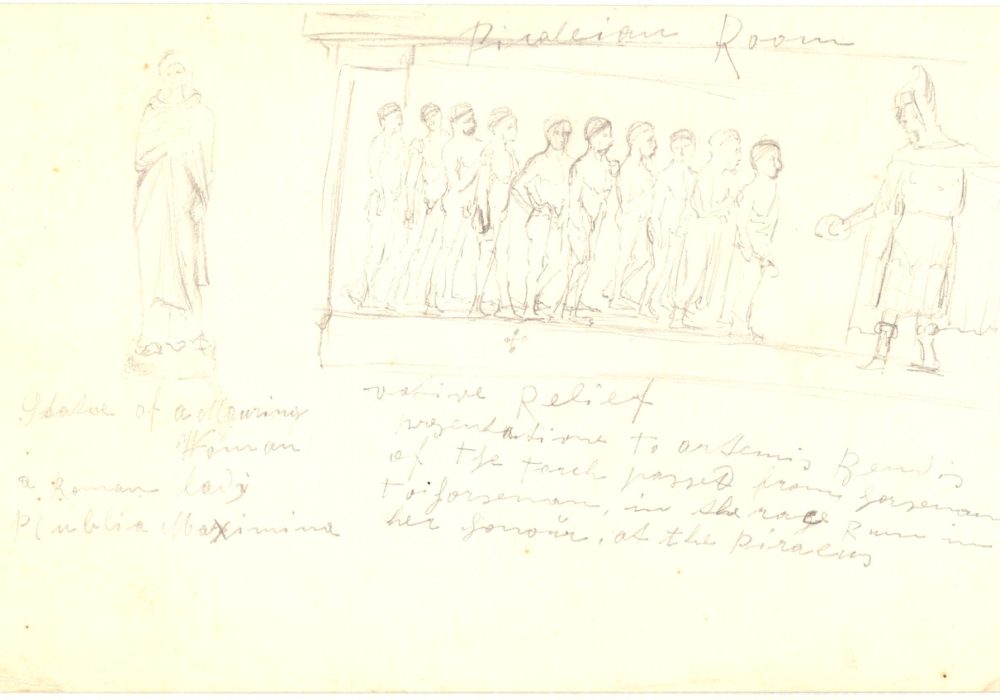 Piraleian Room
Statue of a Mouring
Woman
a Roman lady
Plublia Maximina
votive Relief
presentations to artemis Bendis
of the torch passed from horseman
to horseman, in the race Run in
her honour, at the Piraeus